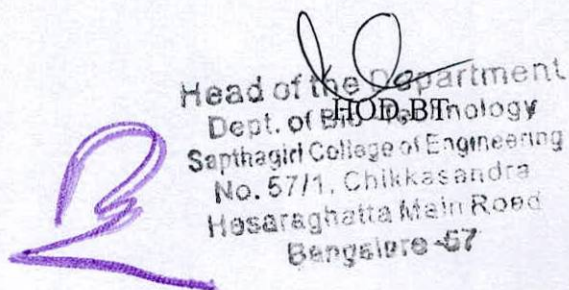 Head of the Department
HOD-BT
Dept. of Bio Technology
Sapthagiri College of Engineering
No. 57/1, Chikkasandra
Hesaraghatta Main Road
Bangalore-57